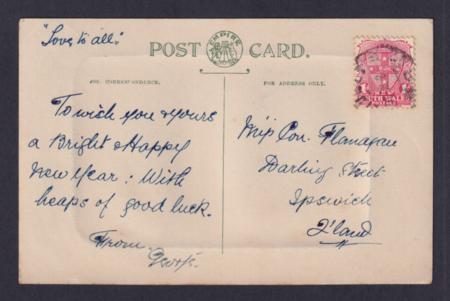 "Love to all."
POST CARD.
EMPIRE
FOR CORRESPONDENCE.
FOR ADDRESS ONLY.
To wish you & yours
a Bright & Happy
New Year: With
heaps of good luck.
From
Miss Con. Flanagan
Darling Street
Ipswich
Q'land